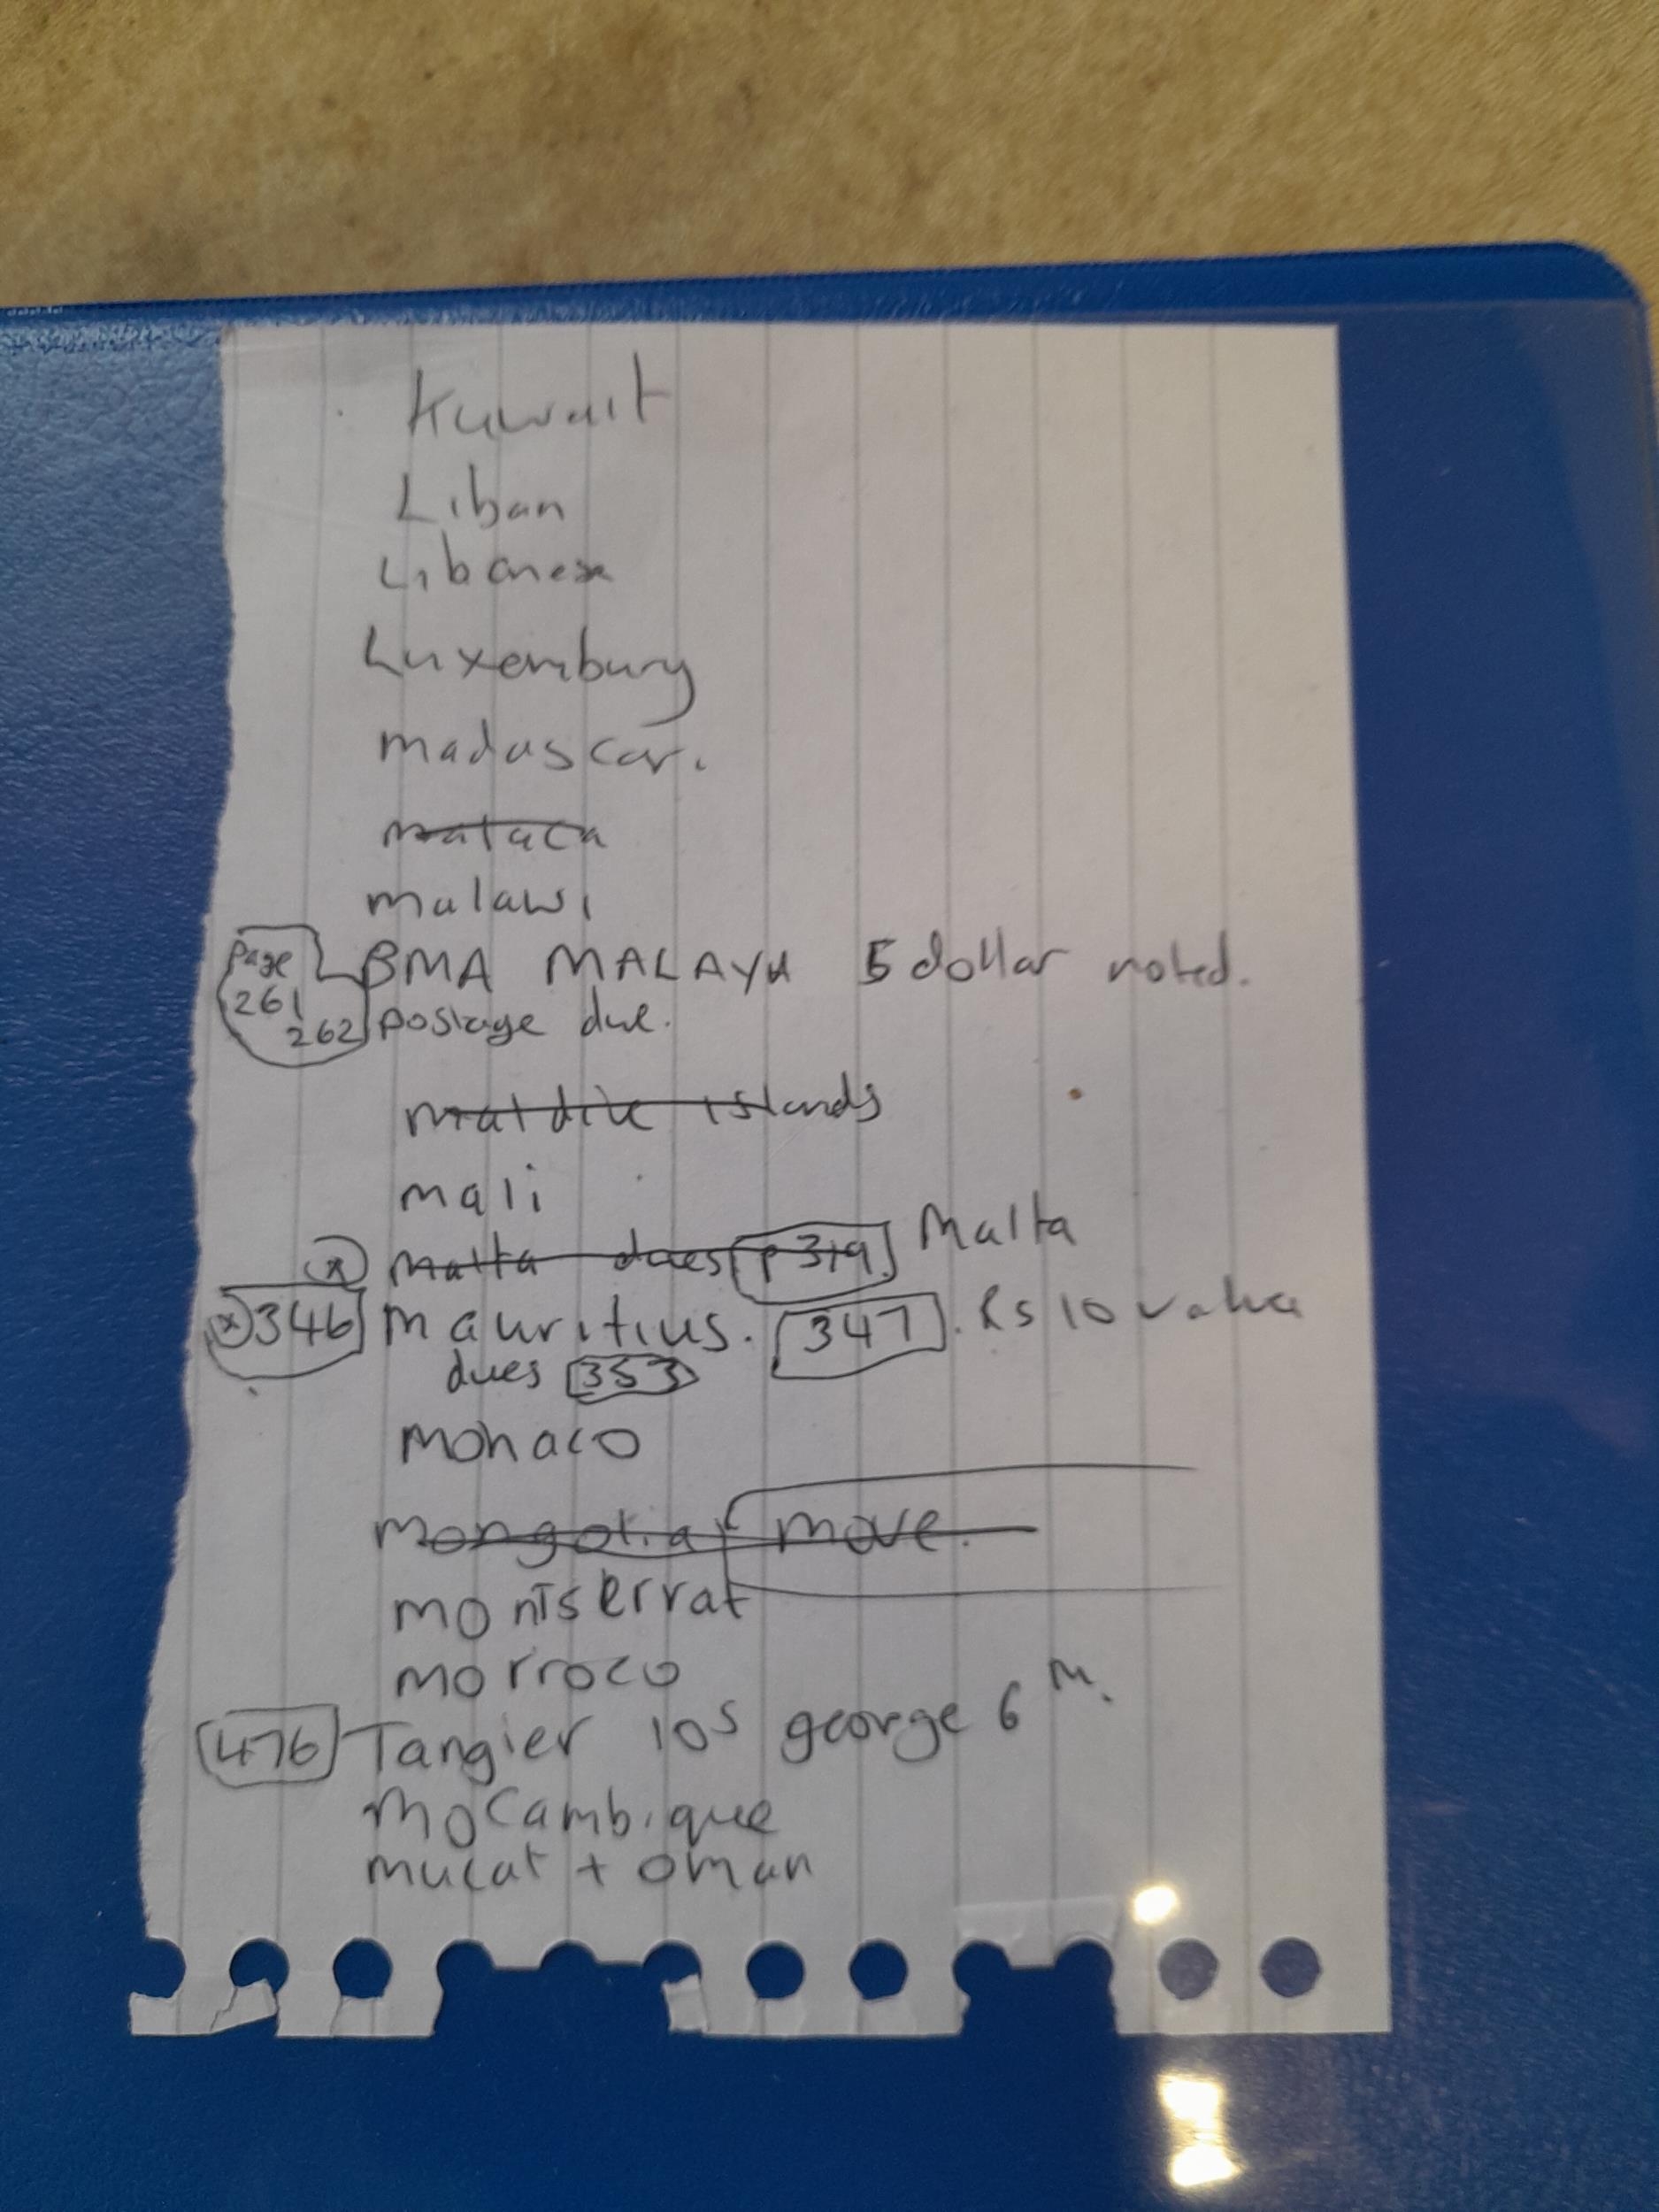 Kuwait
Liban
Libanese
Luxembury
Madascar.
Malaca
Malawi
Page 261 262
BMA MALAYA 5 dollar noted.
postage due.
Maldive islands
Mali
x Malta dues p 319 Malta
x 346 Mauritius. 347. Rs 10 value
dues 353
Monaco
Mongolia move.
Montserrat
Morroco
476 Tangier 10s george 6 M.
Mocambique
Mucat + Oman